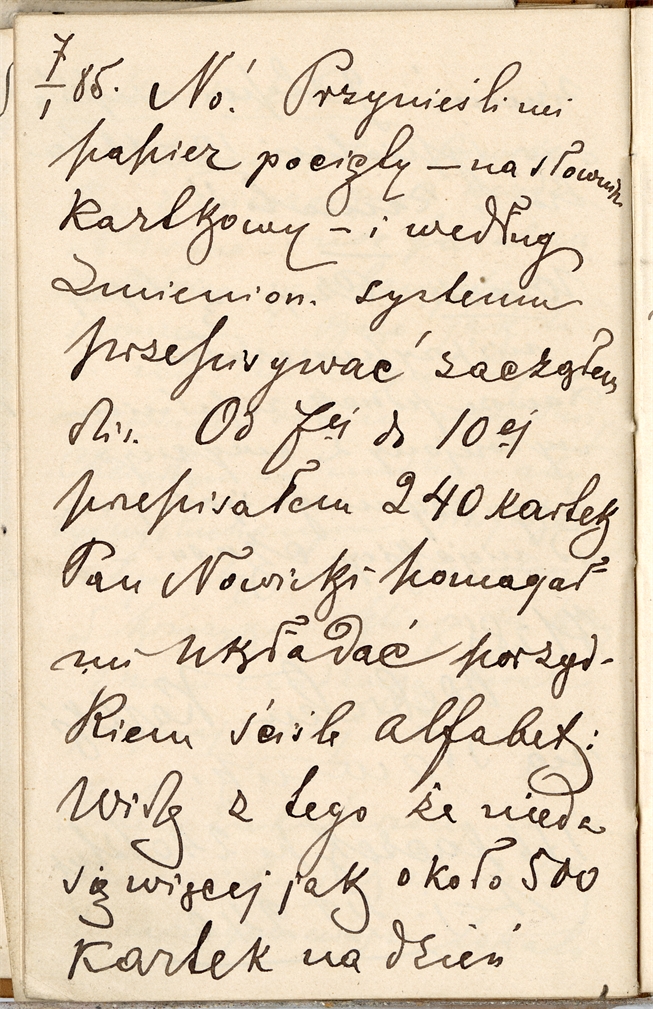 7/1 85. No! Przynieśli mi
papier pocięty – na słownik
kartkowy – i według
zmienion. systemu
przepisywać zacząłem
dziś. Od 7ej do 10ej
przepisałem 240 kartek
Pan Nowicki pomagał
mi układać porząd-
kiem ściśle alfabet:
Widzę z tego że nieda
się więcej jak około 500
kartek na dzień